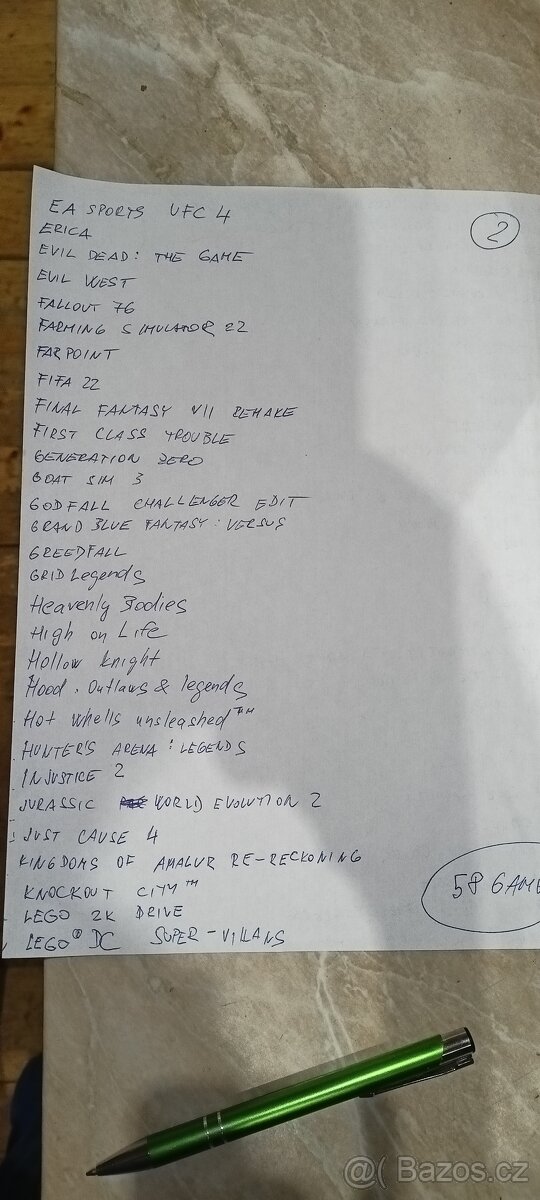 EA SPORTS UFC 4
2
ERICA
EVIL DEAD: THE GAME
EVIL WEST
FALLOUT 76
FARMING SIMULATOR 22
FARPOINT
FIFA 22
FINAL FANTASY VII REMAKE
FIRST CLASS TROUBLE
GENERATION ZERO
GOAT SIM 3
GODFALL CHALLENGER EDIT
GRAND BLUE FANTASY: VERSUS
GREEDFALL
GRID Legends
Heavenly Bodies
High on Life
Hollow knight
Hood. Outlaws & legends
Hot whells unsleashed™
HUNTER'S ARENA: LEGENDS
INJUSTICE 2
JURASSIC WORLD EVOLUTION 2
JUST CAUSE 4
KINGDOMS OF AMALUR RE-RECKONING
KNOCKOUT CITY™
58 GAME
LEGO 2K DRIVE
LEGO® DC SUPER-VILLANS
@( Bazos.cz